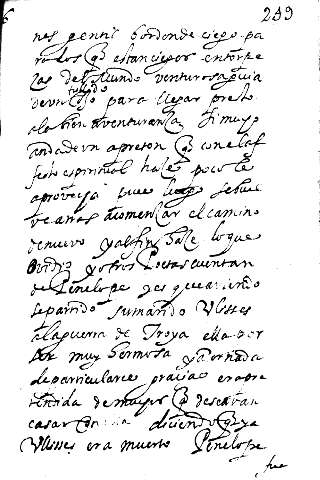 239
nes y en mi bordon de ciego pa
ra los q estan ciegos en torpe
zas del mundo venturosa guia
de un tullido para llegar presto
a la bien aventurança si muy
anda de un apreton q con el af
fecto espiritual haze poco le
aprovecha pues luego se buel
ve atras a comenzar el camino
de nuevo y al fin haze lo que
Ovidio y otros Poetas cuentan
de Penelope y es que aviendo
se partido su marido Ulisses
a la guerra de Troya ella por
ser muy hermosa y adornada
de particulares gracias era pre
tendida de muchos q deseavan
casar con diciendo q ya
Ulisses era muerto Penelope
fue